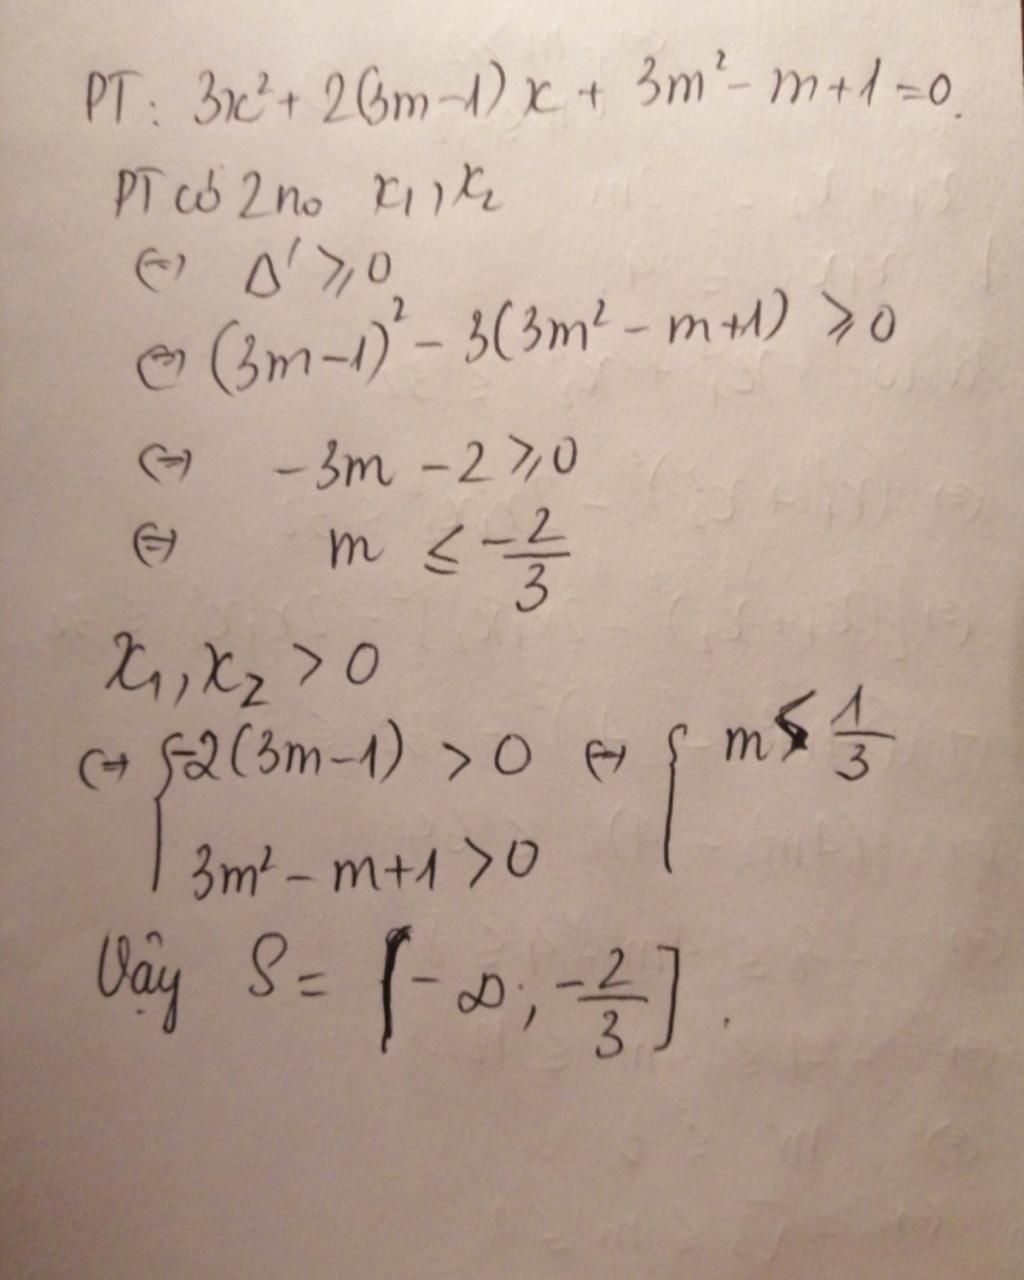 PT: 3x² + 2(3m-1)x + 3m² - m + 1 = 0.
PT có 2 no x₁, x₂
⇔ Δ' ⩾ 0
⇔ (3m-1)² - 3(3m² - m+1) ⩾ 0
⇔ -3m - 2 ⩾ 0
⇔ m ≤ -2/3
x₁, x₂ > 0
⇔ { -2(3m-1) > 0 ⇔ { m < 1/3
3m² - m+1 > 0
Vậy S = [-∞; -2/3].